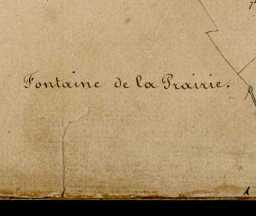 Fontaine de la Prairie.